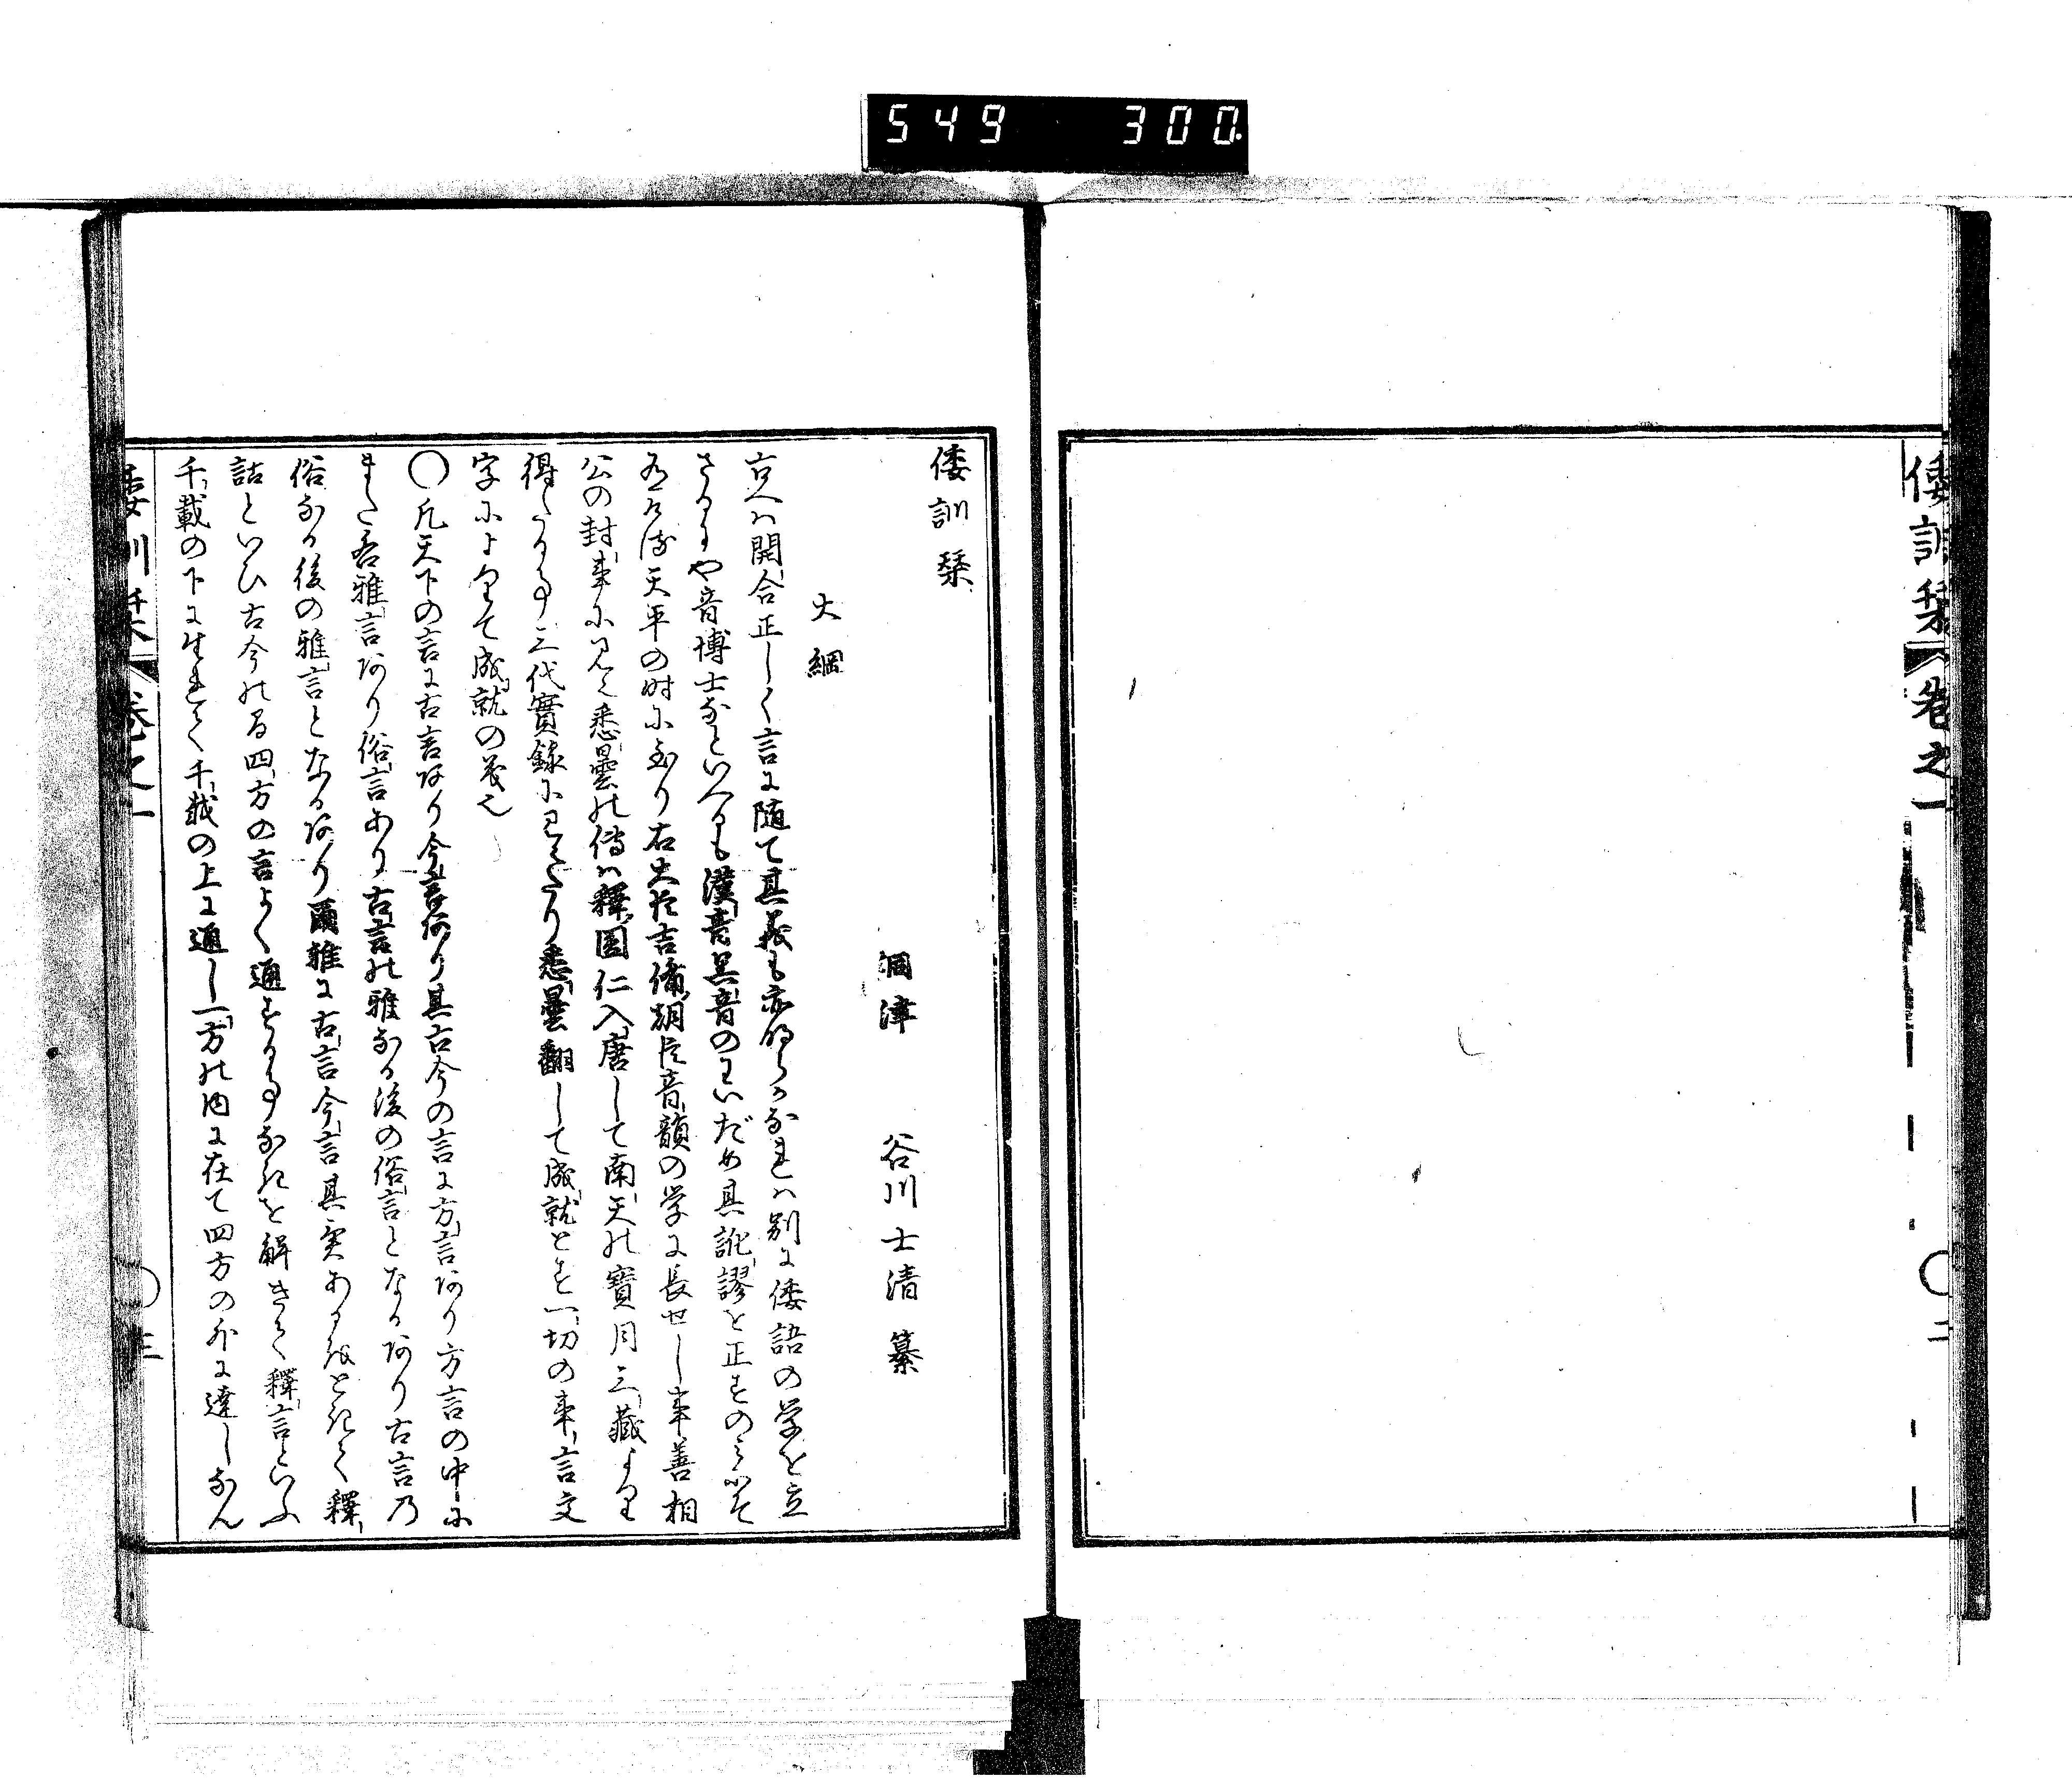 549 300
倭訓栞 卷之一 〇二
倭訓栞
洞津 谷川士清 纂
大綱
古へハ開合正しく言に随て其義も亦明らかなれハ別に倭語の学を立
さるにや音博士なといへるも漢音呉音のわいだめ其訛謬を正すのミにて
天平の時に至り右大臣吉備朝臣音韻の学に長せし事善相
公の封事に見え悉曇の傳ハ釋圓仁入唐して南天の寶月三藏より
得たる事三代實録に見えたり悉曇翻して成就とす一切の事言文
字によりて成就の義也
〇凡天下の言に古言あり今言あり其古今の言に方言あり方言の中に
また各雅言あり俗言あり古言の雅なる後の俗言となるあり古言乃
俗なる後の雅言となるあり爾雅に古言今言其実あるをときて釋
詁といひ古今の名四方の言よく通する事なきを解きて釋言といふ
千載の下に生れて千載の上に通し一方の内に在て四方の外に達しなん
倭訓栞 卷之一 〇三